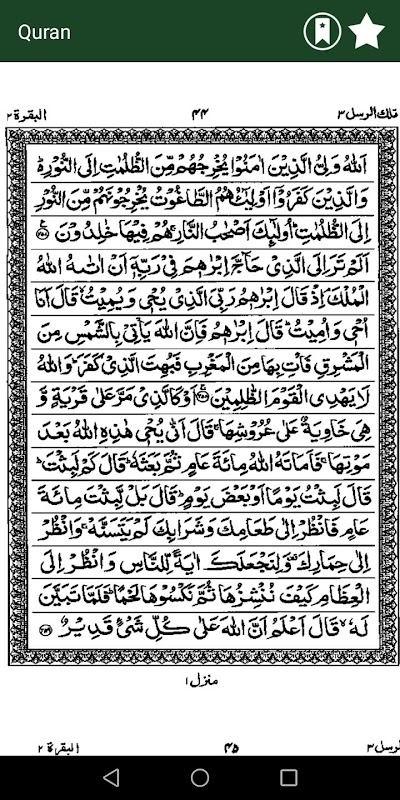 Quran
تلك الرسل ٣ ٤٤ البقرة ٢
اَللّٰهُ وَلِیُّ الَّذِیْنَ اٰمَنُوْا یُخْرِجُهُمْ مِّنَ الظُّلُمٰتِ اِلَی النُّوْرِ ؕ
وَالَّذِیْنَ كَفَرُوْۤا اَوْلِیٰٓـُٔهُمُ الطَّاغُوْتُ یُخْرِجُوْنَهُمْ مِّنَ النُّوْرِ
اِلَی الظُّلُمٰتِ ؕ اُولٰٓىِٕكَ اَصْحٰبُ النَّارِ ۚ هُمْ فِیْهَا خٰلِدُوْنَ ﴿۲۵۷﴾
اَلَمْ تَرَ اِلَی الَّذِیْ حَآجَّ اِبْرٰهٖمَ فِیْ رَبِّهٖۤ اَنْ اٰتٰىهُ اللّٰهُ
الْمُلْكَ ۘ اِذْ قَالَ اِبْرٰهٖمُ رَبِّیَ الَّذِیْ یُحْیٖ وَیُمِیْتُ ۙ قَالَ اَنَا
اُحْیٖ وَاُمِیْتُ ؕ قَالَ اِبْرٰهٖمُ فَاِنَّ اللّٰهَ یَاْتِیْ بِالشَّمْسِ مِنَ
الْمَشْرِقِ فَاْتِ بِهَا مِنَ الْمَغْرِبِ فَبُهِتَ الَّذِیْ كَفَرَ ؕ وَاللّٰهُ
لَا یَهْدِی الْقَوْمَ الظّٰلِمِیْنَ ﴿۲۵۸﴾ اَوْ كَالَّذِیْ مَرَّ عَلٰی قَرْیَةٍ وَّ
هِیَ خَاوِیَةٌ عَلٰی عُرُوْشِهَا ۚ قَالَ اَنّٰی یُحْیٖ هٰذِهِ اللّٰهُ بَعْدَ
مَوْتِهَا ۚ فَاَمَاتَهُ اللّٰهُ مِائَةَ عَامٍ ثُمَّ بَعَثَهٗ ؕ قَالَ كَمْ لَبِثْتَ ؕ
قَالَ لَبِثْتُ یَوْمًا اَوْ بَعْضَ یَوْمٍ ؕ قَالَ بَلْ لَّبِثْتَ مِائَةَ
عَامٍ فَانْظُرْ اِلٰی طَعَامِكَ وَشَرَابِكَ لَمْ یَتَسَنَّهْ ۚ وَانْظُرْ
اِلٰی حِمَارِكَ وَلِنَجْعَلَكَ اٰیَةً لِّلنَّاسِ وَانْظُرْ اِلَی
الْعِظَامِ كَیْفَ نُنْشِزُهَا ثُمَّ نَكْسُوْهَا لَحْمًا ؕ فَلَمَّا تَبَیَّنَ
لَهٗ ۙ قَالَ اَعْلَمُ اَنَّ اللّٰهَ عَلٰی كُلِّ شَیْءٍ قَدِیْرٌ ﴿۲۵۹﴾
منزل ۱
الرسل ٣ ٤٥ البقرة ٢